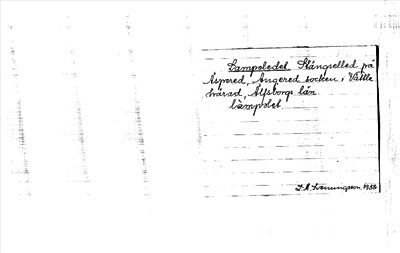 Lampeledet Stängselled på
Äspered, Angered socken, Vättle
härad, Älfsborgs län.
lampolet
D. A. Svenungsson 1933